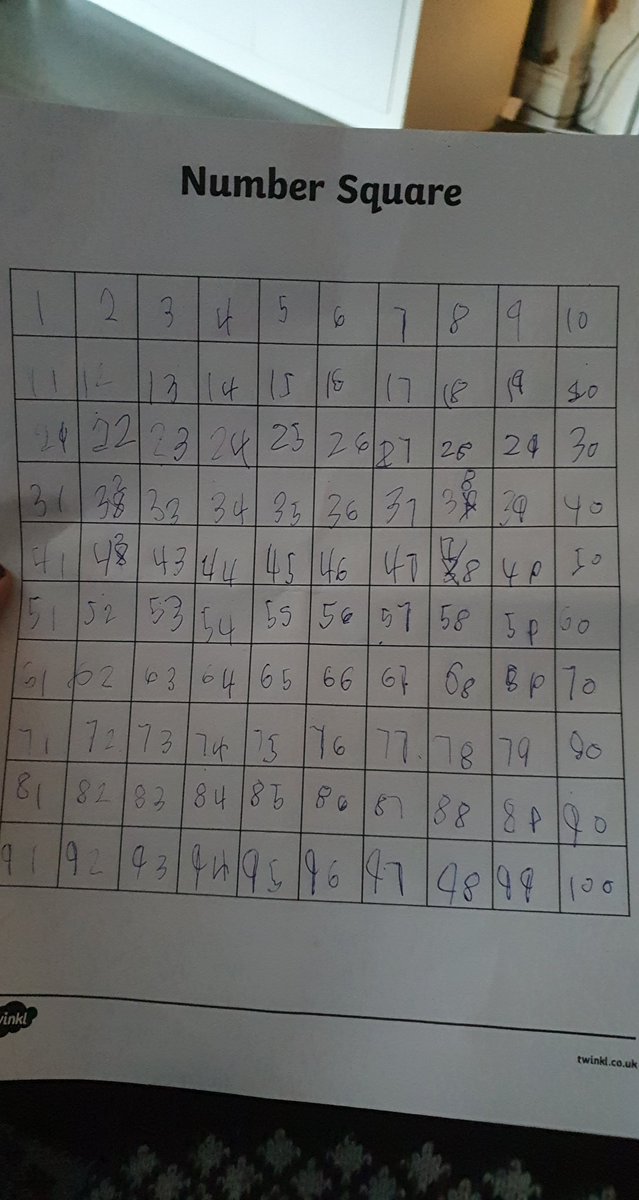 Number Square
1 2 3 4 5 6 7 8 9 10
11 12 13 14 15 16 17 18 19 20
21 22 23 24 25 26 27 28 29 30
31 32 33 34 35 36 37 38 39 40
41 42 43 44 45 46 47 48 49 50
51 52 53 54 55 56 57 58 59 60
61 62 63 64 65 66 67 68 69 70
71 72 73 74 75 76 77 78 79 80
81 82 83 84 85 86 87 88 89 90
91 92 93 94 95 96 97 98 99 100
winkl
twinkl.co.uk